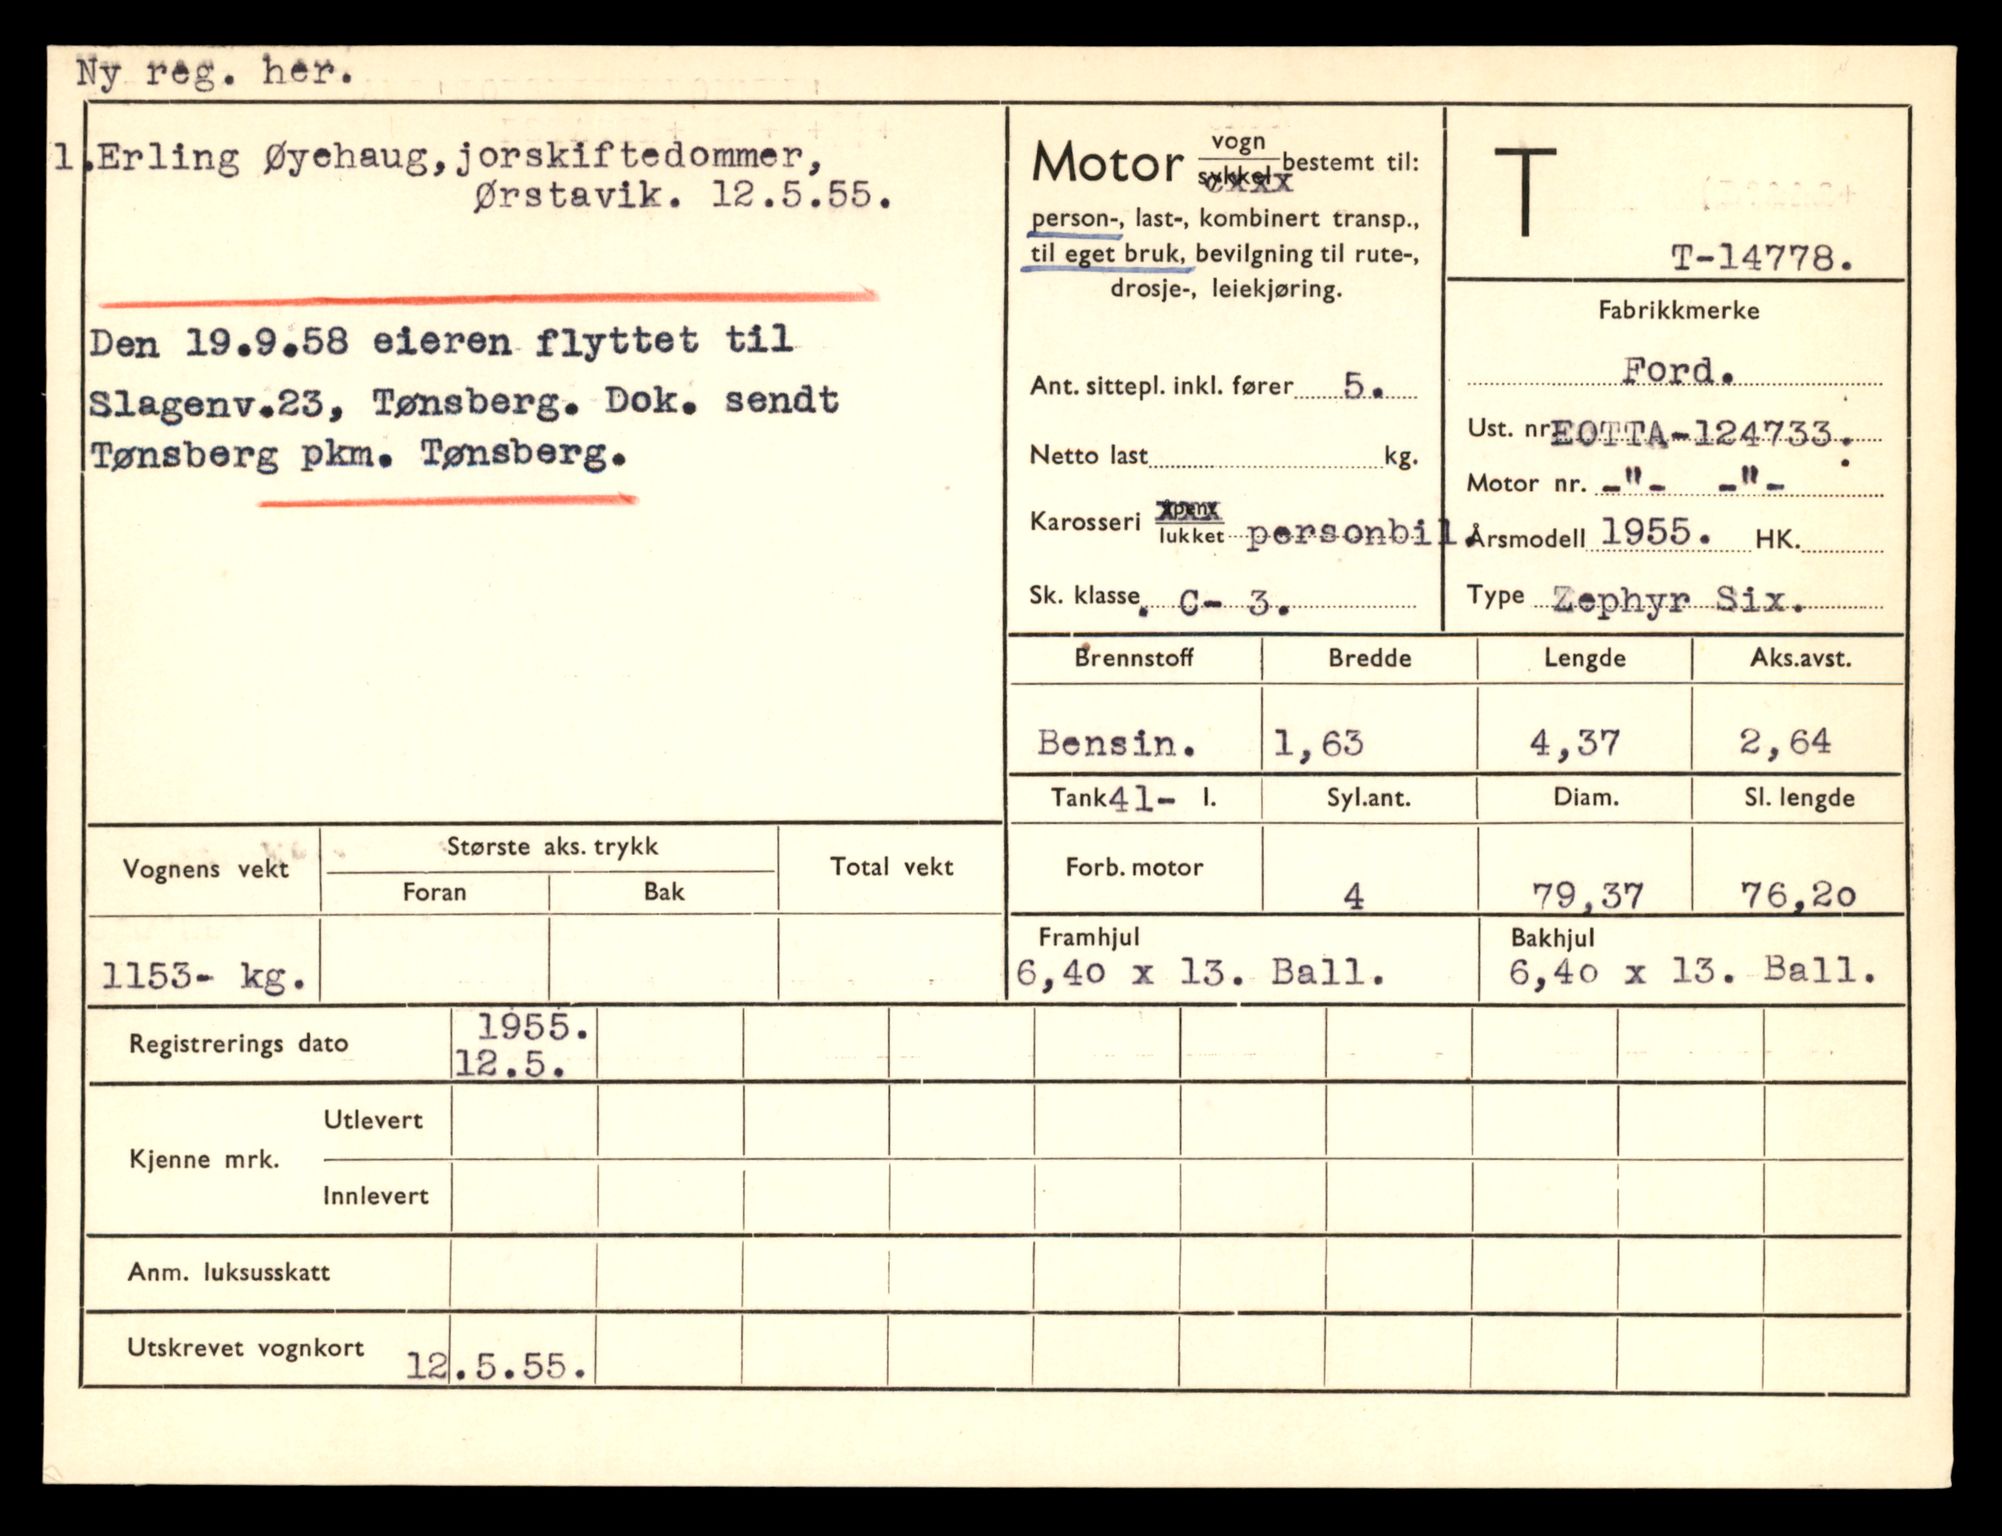 Ny reg. her.
1.Erling Øyehaug,jorskiftedommer,
Ørstavik. 12.5.55.
Den 19.9.58 eieren flyttet til
Slagenv.23, Tønsberg. Dok. sendt
Tønsberg pkm. Tønsberg.
Motor vogn/sykkel bestemt til:
person-, last-, kombinert transp.,
til eget bruk, bevilgning til rute-,
drosje-, leiekjøring.
Ant. sittepl. inkl. fører 5.
Netto last kg.
Karosseri åpen/lukket personbil.
Sk. klasse. C- 3.
T
T-14778.
Fabrikkmerke
Ford.
Ust. nr EOTTA-124733.
Motor nr. -"- -"-
Årsmodell 1955. HK.
Type Zephyr Six.
Brennstoff Bredde Lengde Aks.avst.
Bensin. 1,63 4,37 2,64
Tank 41- l. Syl.ant. Diam. Sl. lengde
Forb. motor 4 79,37 76,20
Framhjul Bakhjul
6,40 x 13. Ball. 6,40 x 13. Ball.
Vognens vekt Største aks. trykk Total vekt
Foran Bak
1153- kg.
Registrerings dato 1955.
12.5.
Kjenne mrk. Utlevert
Innlevert
Anm. luksusskatt
Utskrevet vognkort 12.5.55.